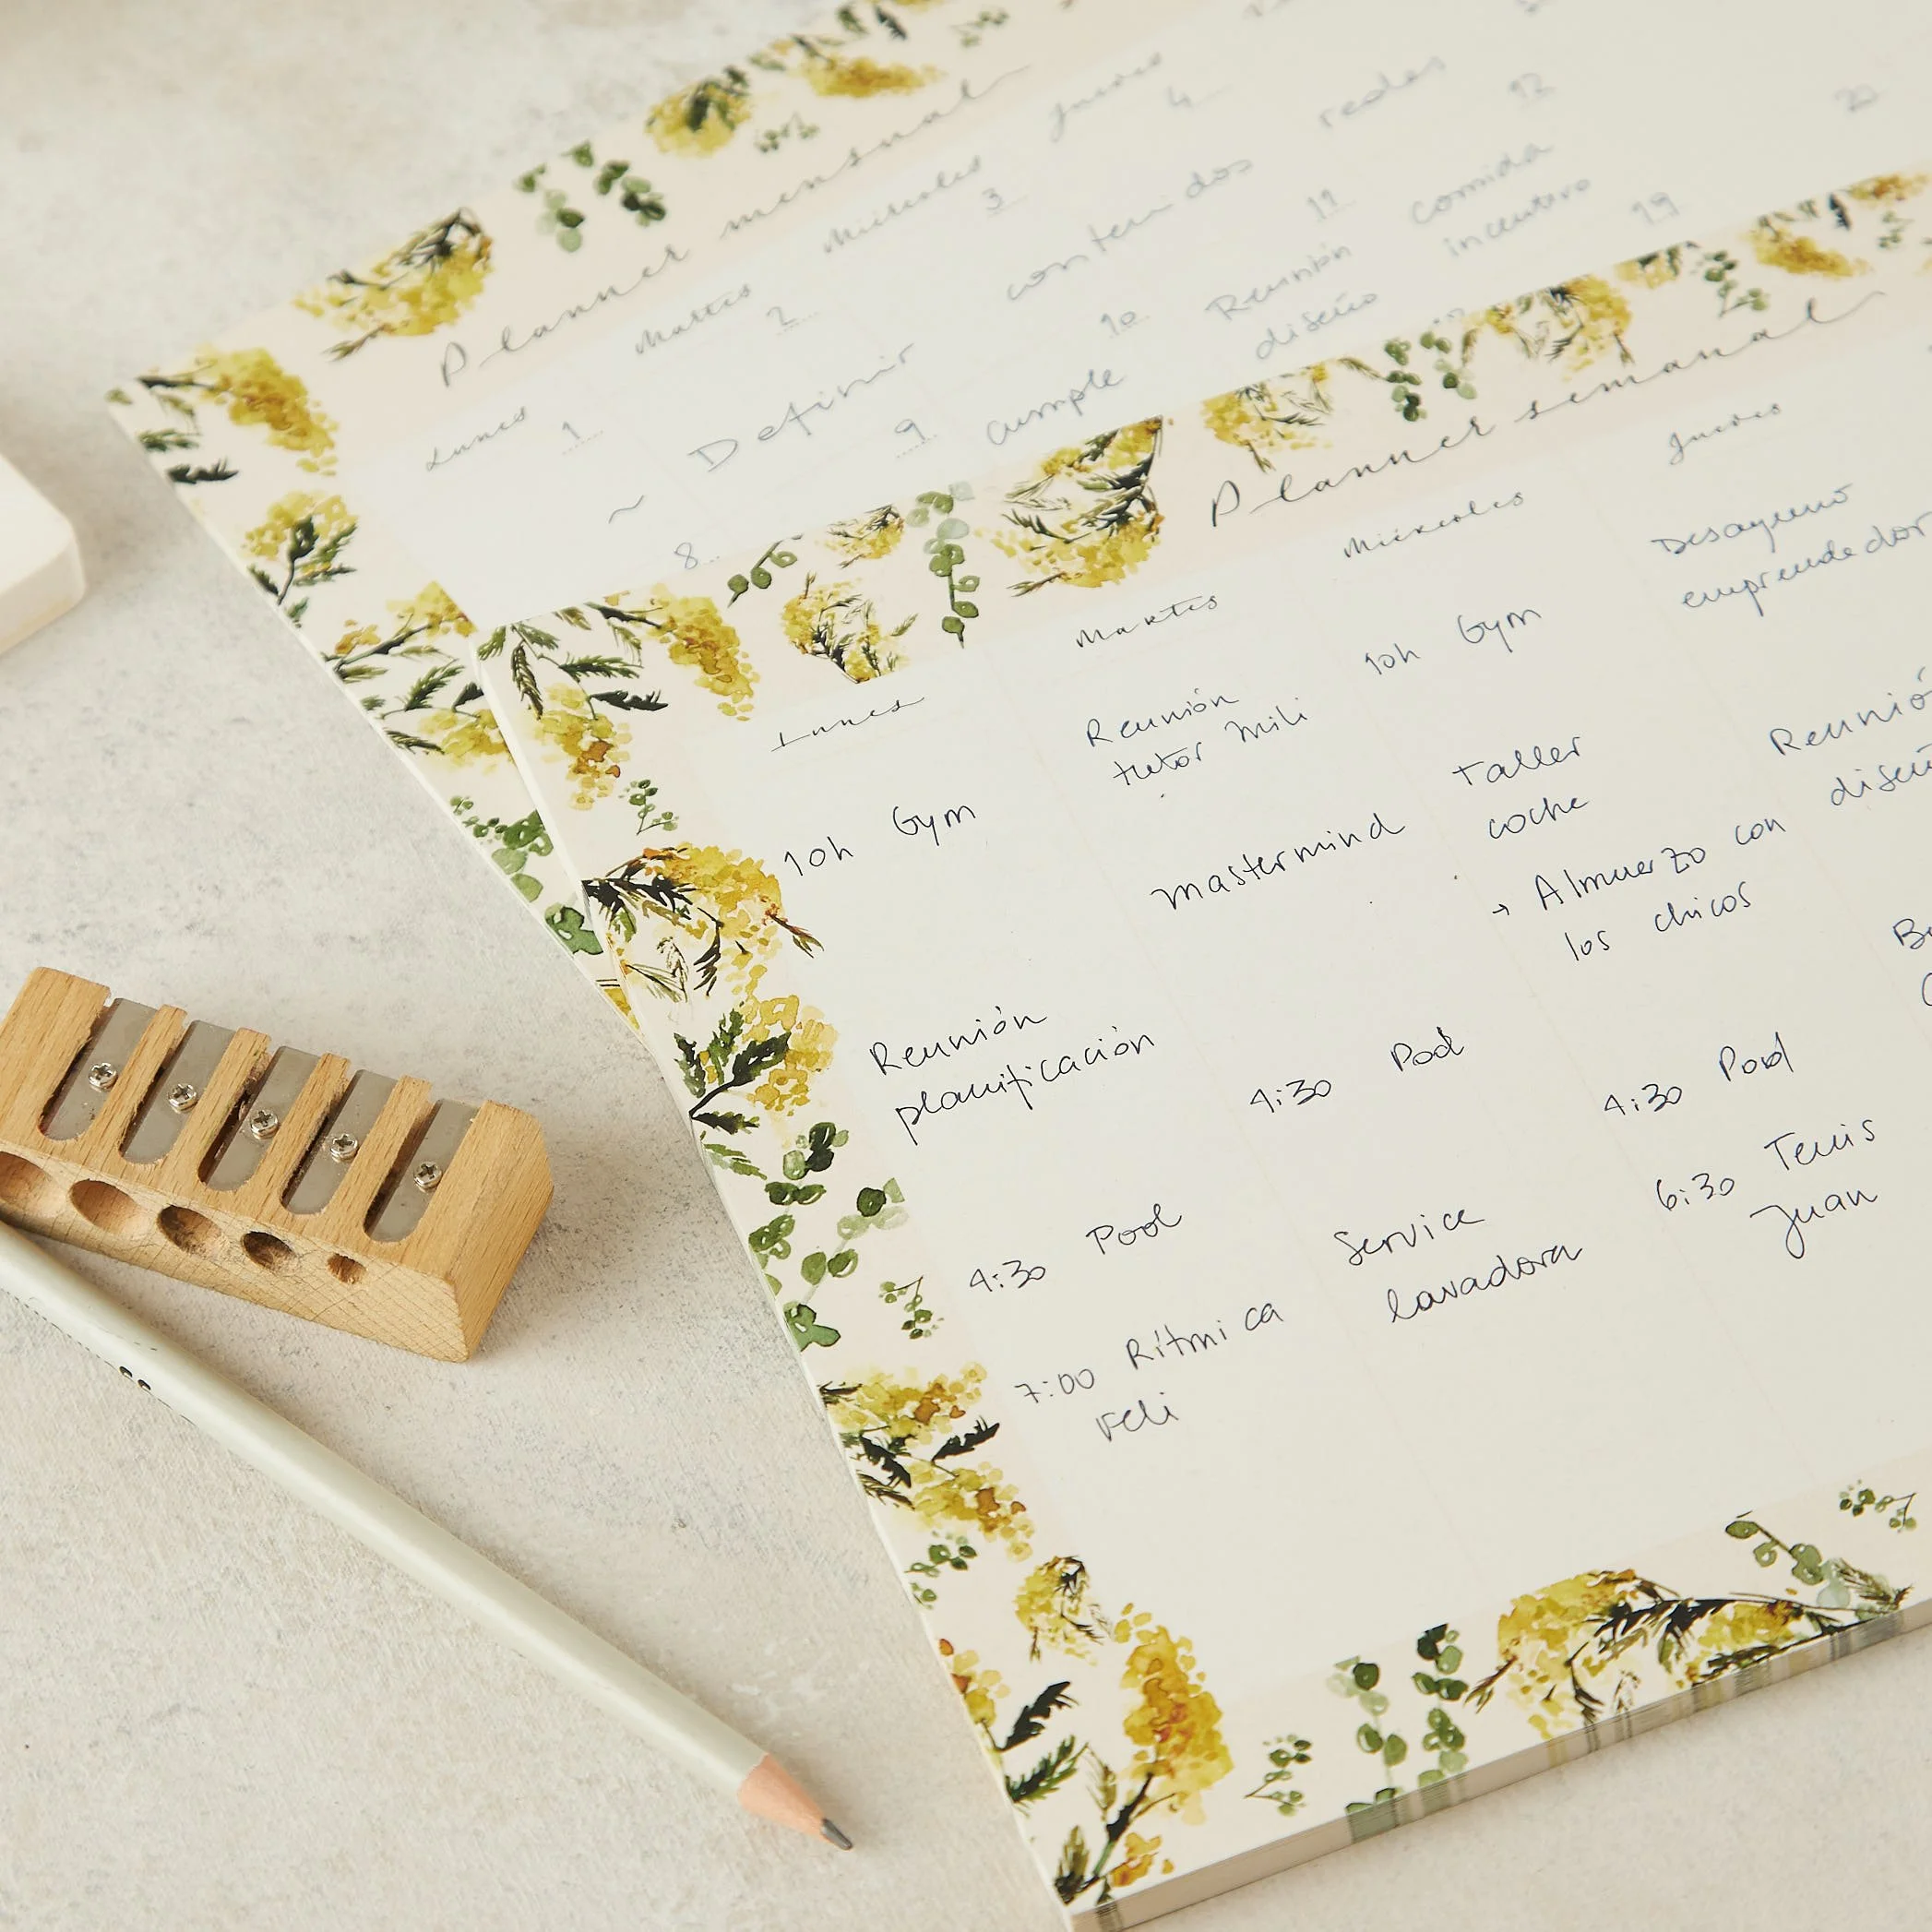 Planner mensual
Lunes
Martes
Miércoles
Jueves
1
2
3
4
~ Definir contenidos redes
8
9
10
11
12
cumple
Reunión
diseño
comida
incentivo
19
20
Planner semanal
Lunes
10h Gym
Reunión
planificación
4:30 Pool
7:00 Rítmica
Feli
Martes
Reunión
tutor Mili
Mastermind
4:30 Pool
Service
lavadora
Miércoles
10h Gym
Taller
coche
→ Almuerzo con
los chicos
4:30 Pool
6:30 Tenis
Juan
Jueves
Desayuno
emprendedor
Reunió
diseñ